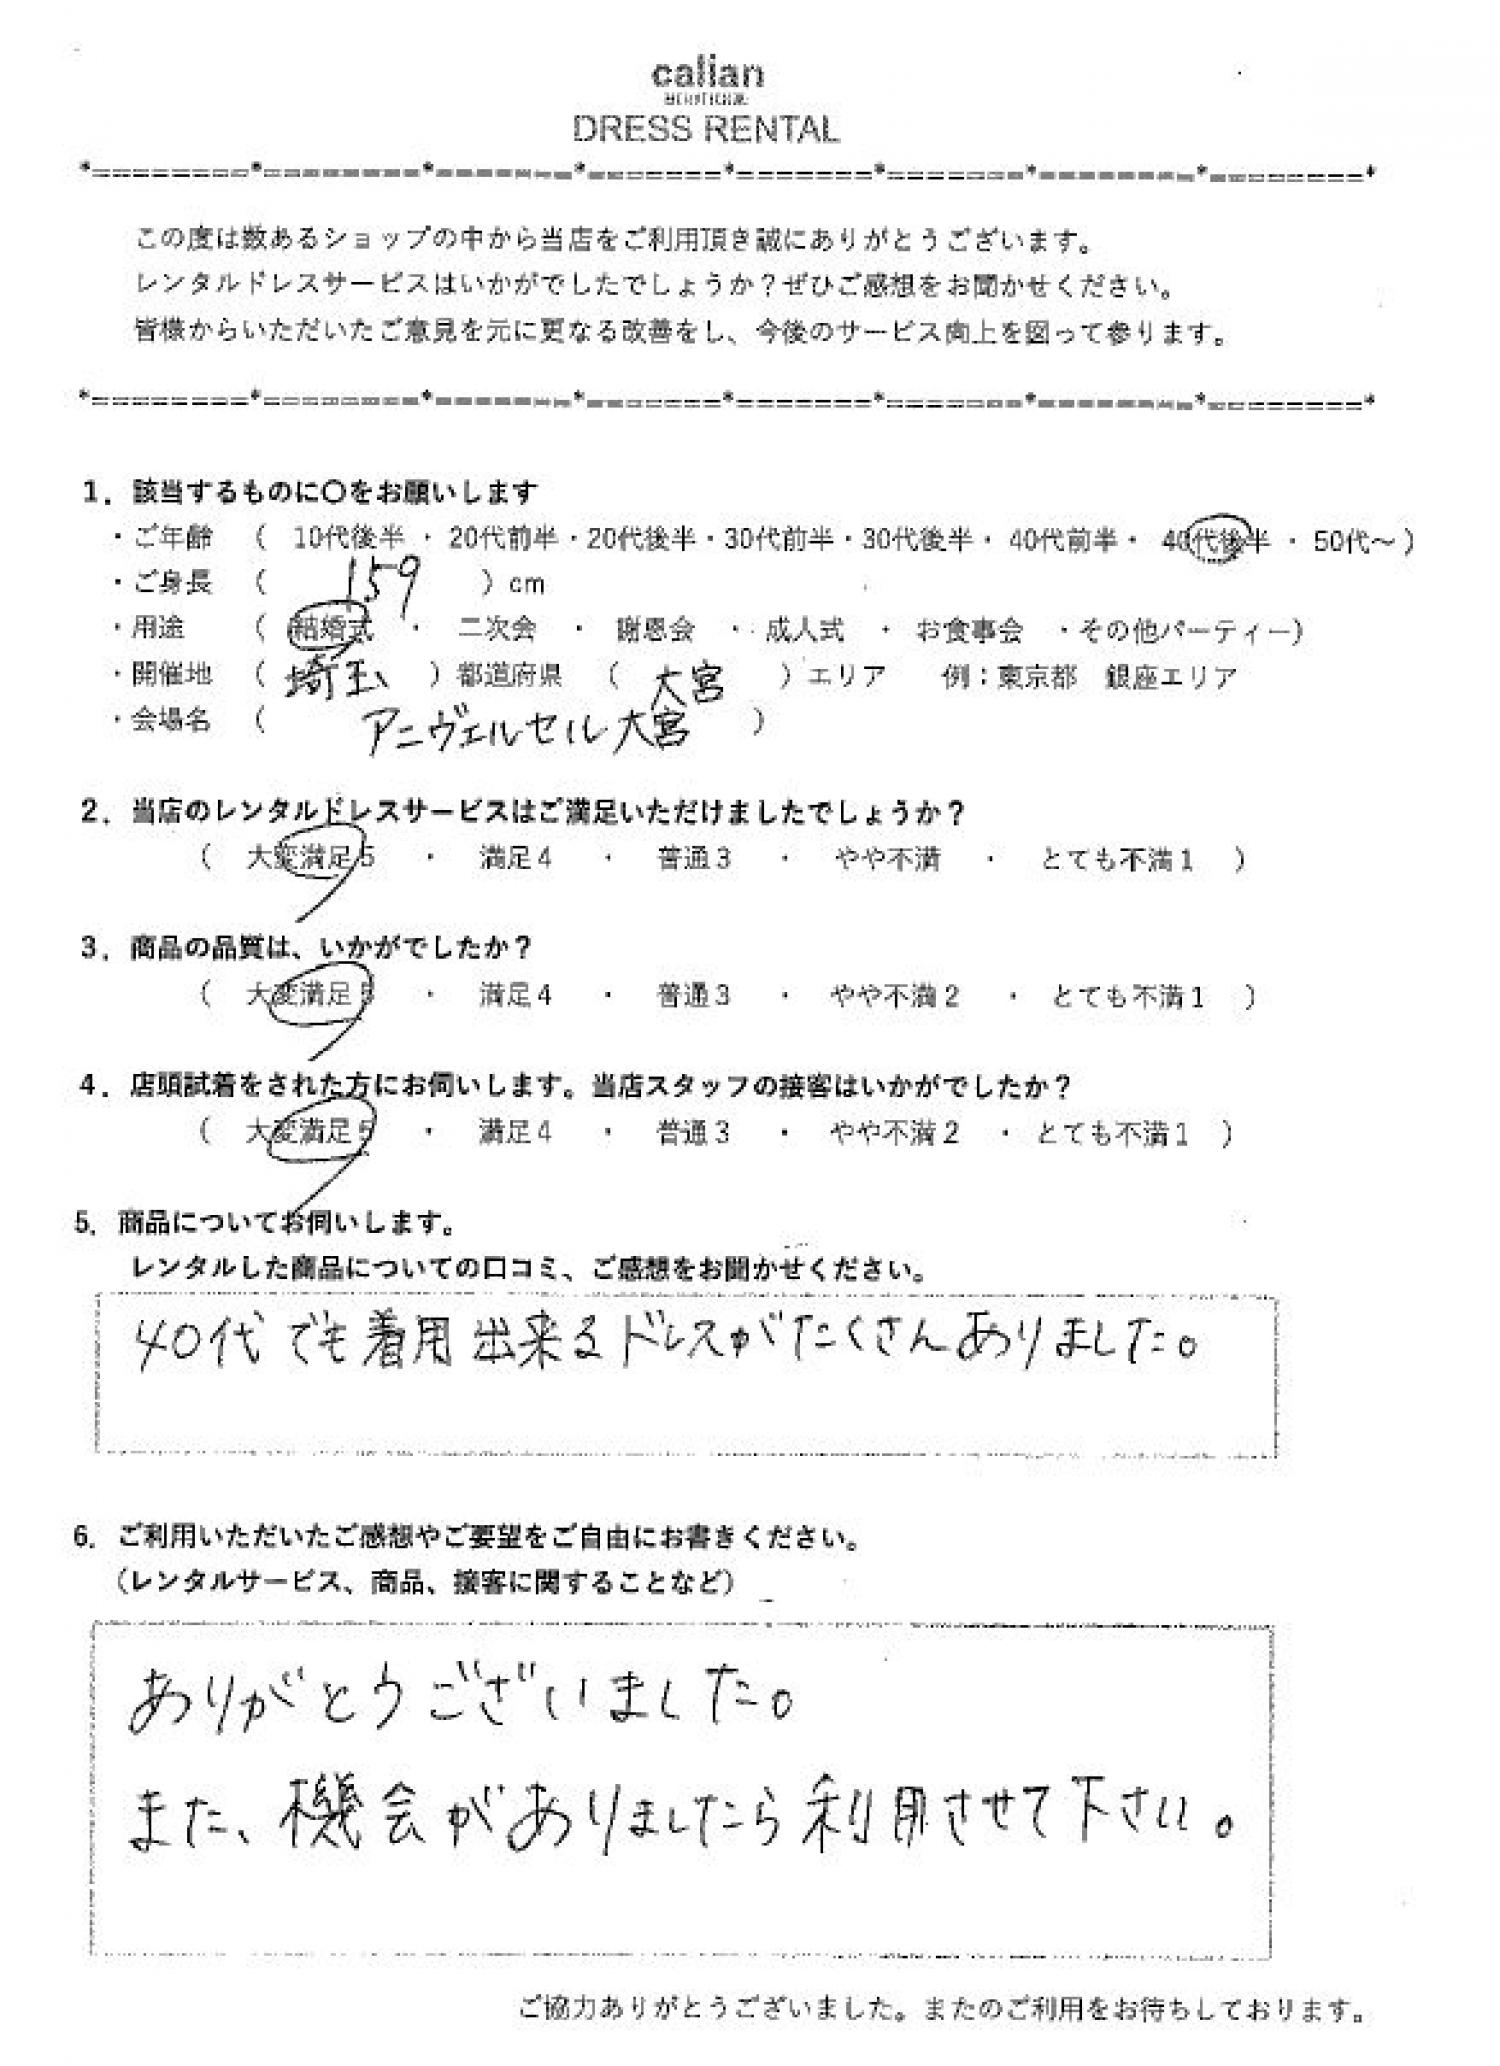 calian
DRESS RENTAL
*========*========*=======*=======*=======*=======*========*========*
この度は数あるショップの中から当店をご利用頂き誠にありがとうございます。
レンタルドレスサービスはいかがでしたでしょうか?ぜひご感想をお聞かせください。
皆様からいただいたご意見を元に更なる改善をし、今後のサービス向上を図って参ります。
*========*========*=======*=======*=======*=======*========*========*
1. 該当するものに〇をお願いします
・ご年齢 ( 10代後半 ・ 20代前半・20代後半・30代前半・30代後半・ 40代前半・ 40代後半 ・ 50代~)
・ご身長 ( 159 )cm
・用途 ( 結婚式 ・ 二次会 ・ 謝恩会 ・ 成人式 ・ お食事会 ・その他パーティー)
・開催地 ( 埼玉 )都道府県 ( 大宮 )エリア 例:東京都 銀座エリア
・会場名 ( アニヴェルセル大宮 )
2. 当店のレンタルドレスサービスはご満足いただけましたでしょうか?
( 大変満足5 ・ 満足4 ・ 普通3 ・ やや不満 ・ とても不満1 )
3. 商品の品質は、いかがでしたか?
( 大変満足5 ・ 満足4 ・ 普通3 ・ やや不満2 ・ とても不満1 )
4. 店頭試着をされた方にお伺いします。当店スタッフの接客はいかがでしたか?
( 大変満足5 ・ 満足4 ・ 普通3 ・ やや不満2 ・ とても不満1 )
5. 商品についてお伺いします。
レンタルした商品についての口コミ、ご感想をお聞かせください。
40代でも着用出来るドレスがたくさんありました。
6. ご利用いただいたご感想やご要望をご自由にお書きください。
(レンタルサービス、商品、接客に関することなど)
ありがとうございました。
また、機会がありましたら利用させて下さい。
ご協力ありがとうございました。またのご利用をお待ちしております。